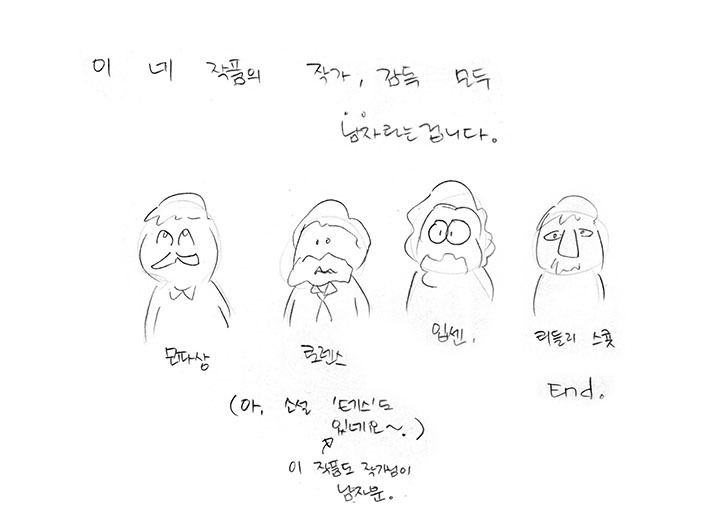 이 네 작품의 작가, 감독 모두
남자라는겁니다.
모파상
로렌스
입센.
리들리 스콧
End.
(아, 소설 '테스'도
있네요~.)
이 작품도 작가님이
남자분.